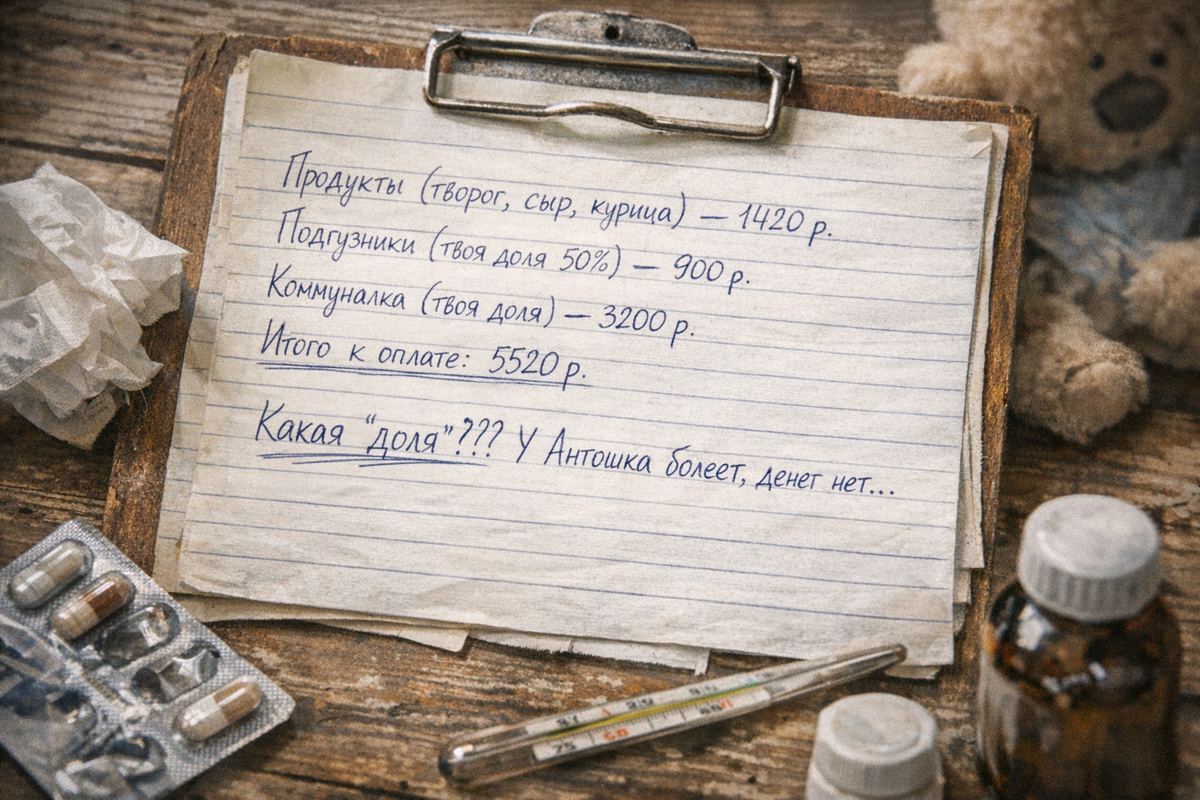 Продукты (творог, сыр, курица) — 1420 р.
Подгузники (твоя доля 50%) — 900 р.
Коммуналка (твоя доля) — 3200 р.
Итого к оплате: 5520 р.
Какая "доля"??? У Антошка болеет, денег нет...